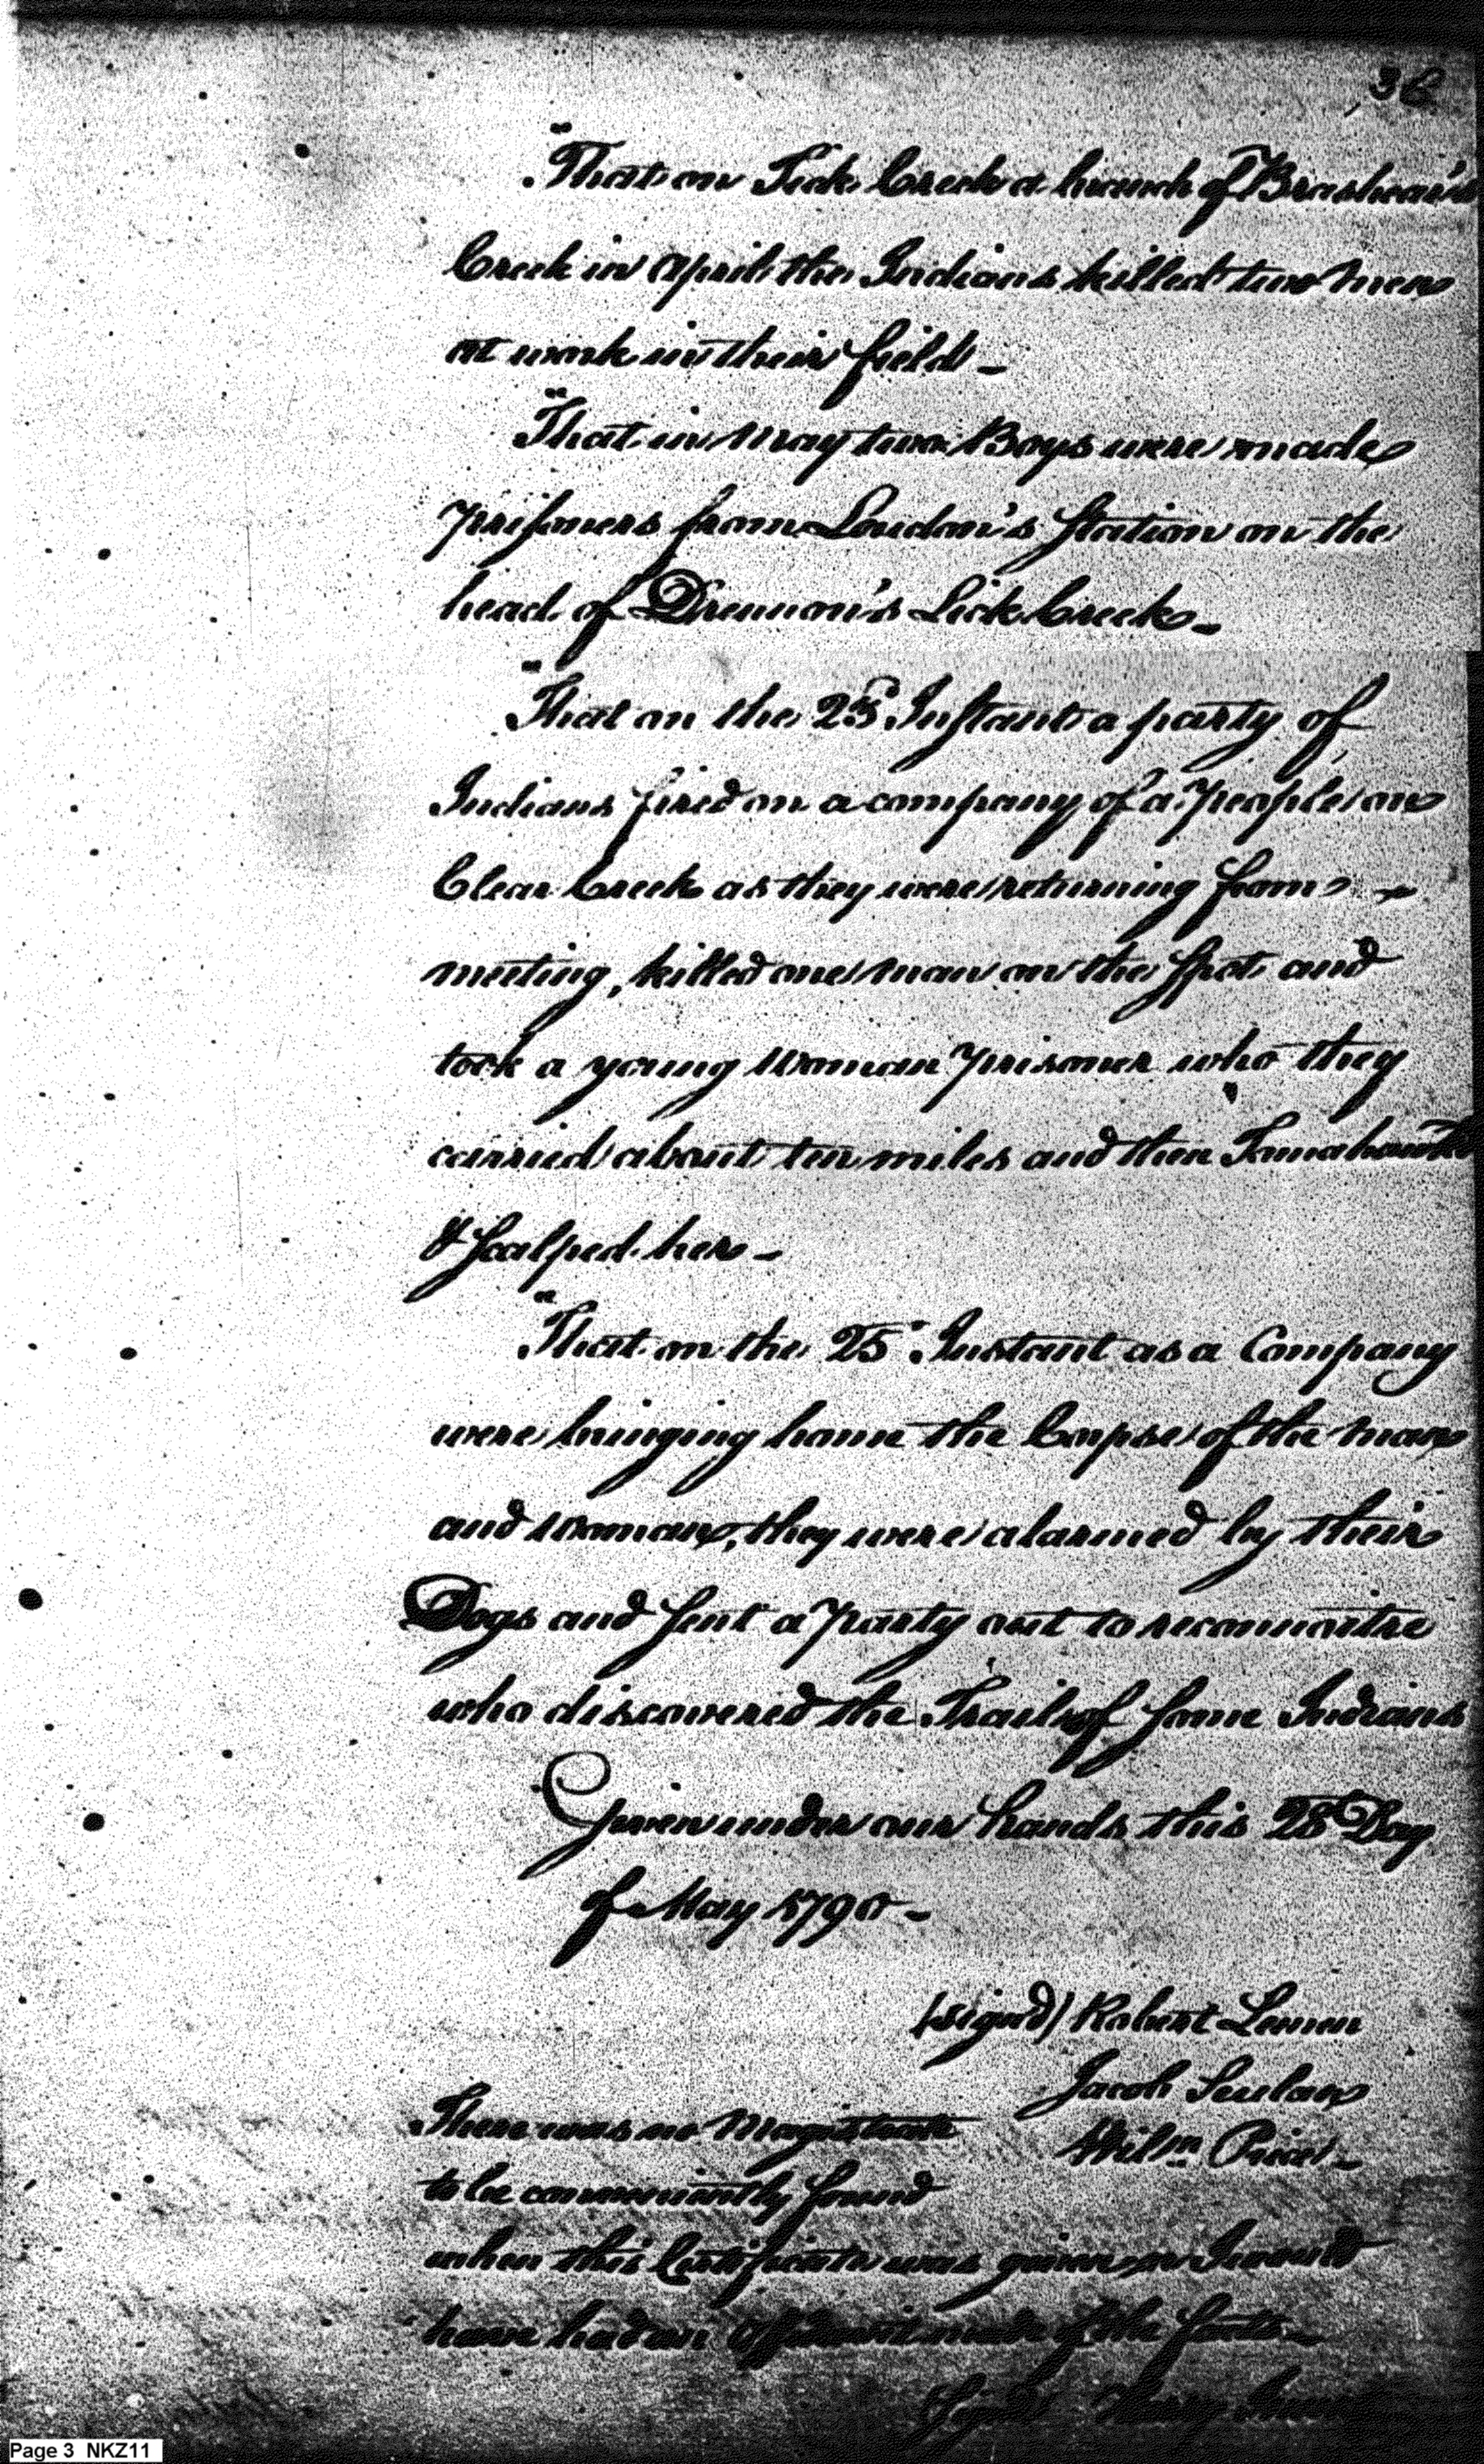 36
"That on Tick Creek a branch of Brashear's
Creek in April the Indians killed two men
at work in their field –
"That in May two Boys were made
prisoners from Loudon's Station on the
head of Drennon's Lick Creek –
"That on the 23d Instant a party of
Indians fired on a company of a people on
Clear Creek as they were returning from –
meeting, killed one man on the spot and
took a young Woman prisoner who they
carried about ten miles and then Tomahawk'd
& Scalped her –
"That on the 25 Instant as a Company
were bringing home the Corpse of the man
and woman, they were alarmed by their
Dogs and sent a party out to reconnoitre
who discovered the Trail of some Indians
Given under our hands this 28 Day
of May 1790 –
(signd) Robert Lemen
Jacob
There was no Magistrate
Wilm Price –
to be conveniently found
when this Certificate was given or I would
have had an Affidavit made of the facts –
Signd
Page 3 NKZ11